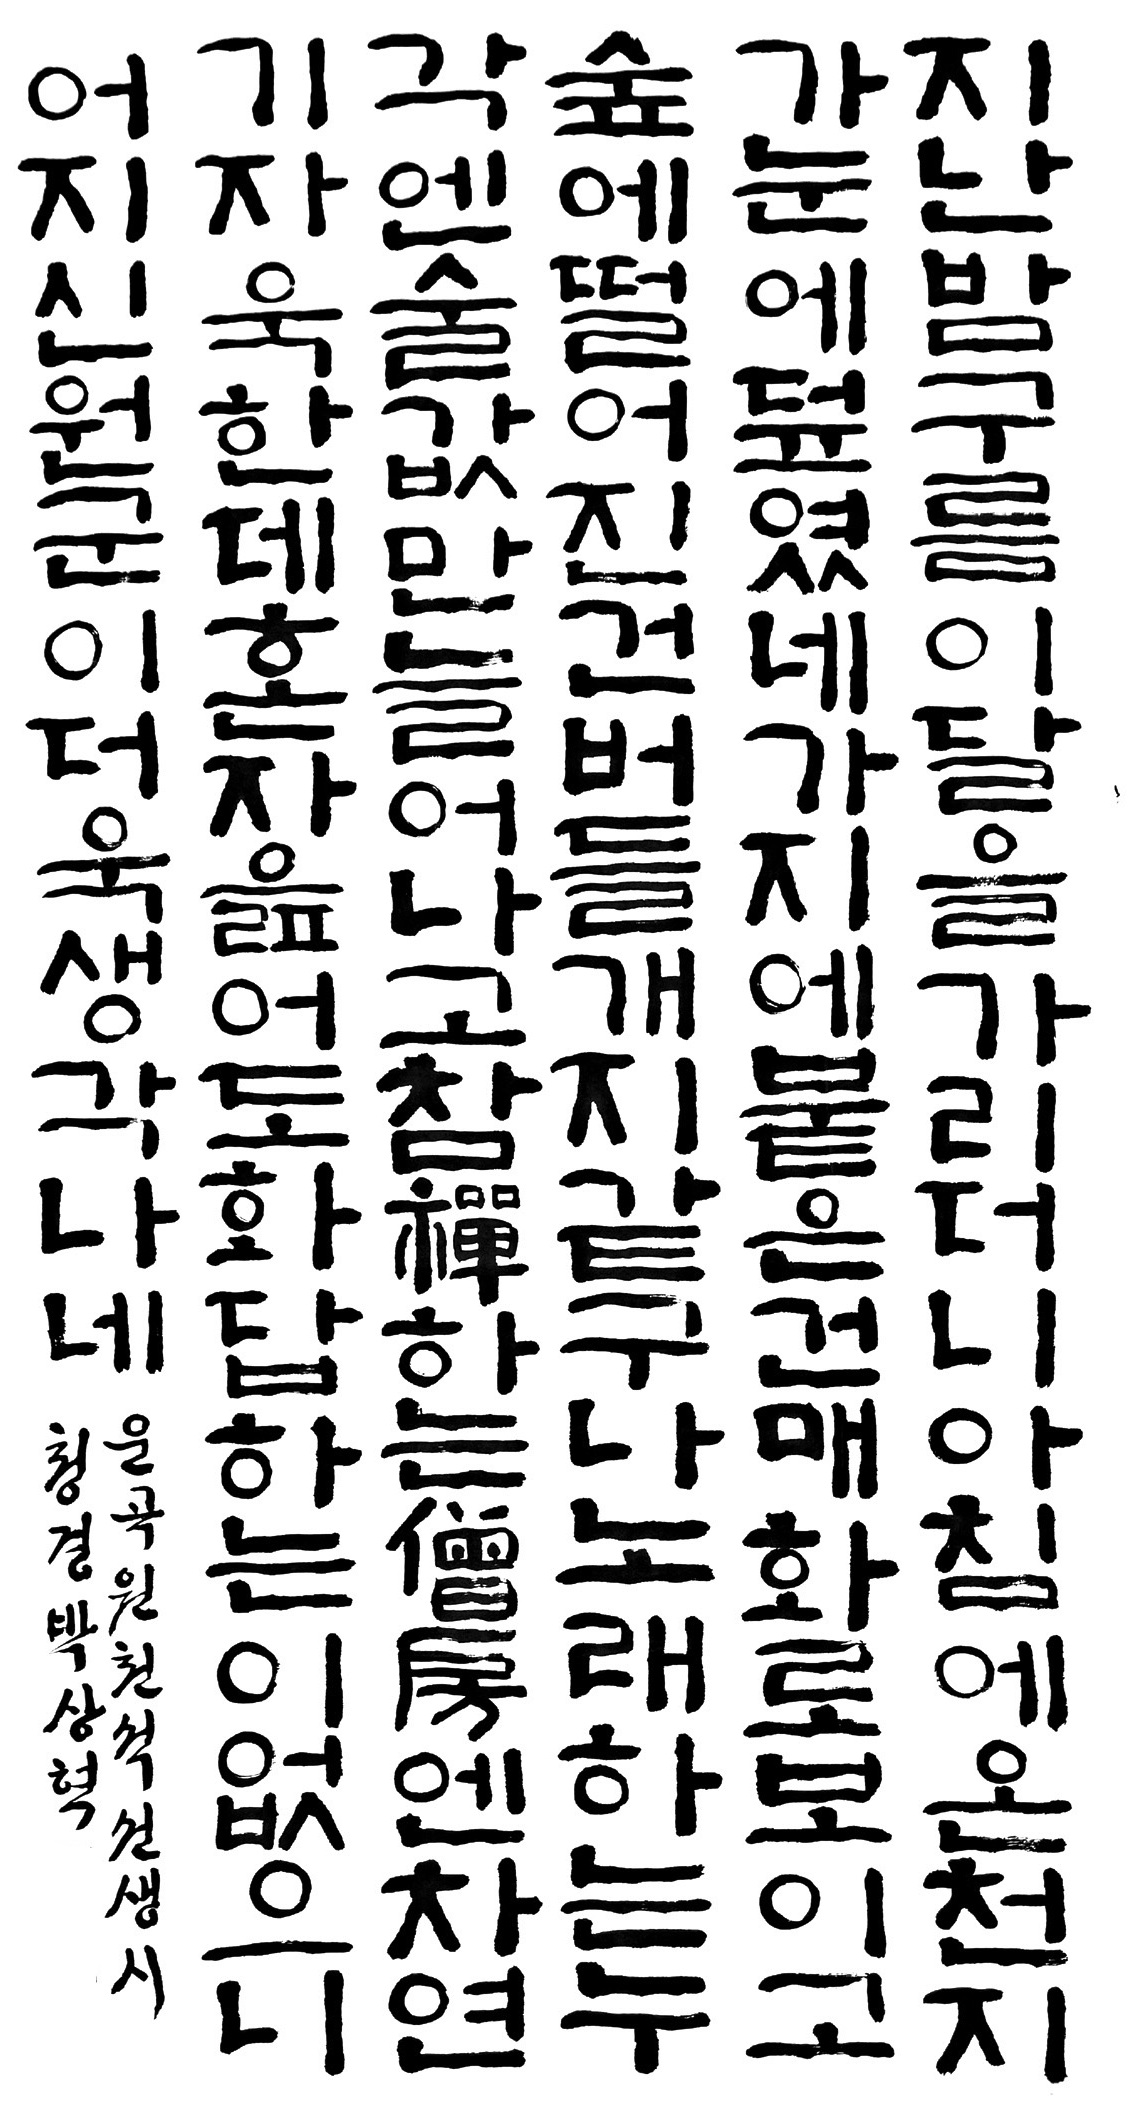 지난밤구름이달을가리더니아침에온천지
가눈에덮였네가지에붙은건매화로보이고
숲에떨어진건버들개지같구나노래하는누
각엔술값만늘어나고참禪하는僧房엔차연
기자욱한데혼자읊어도화답하는이없으니
어지신원군이더욱생각나네
운곡원천석선생시
청경박상혁